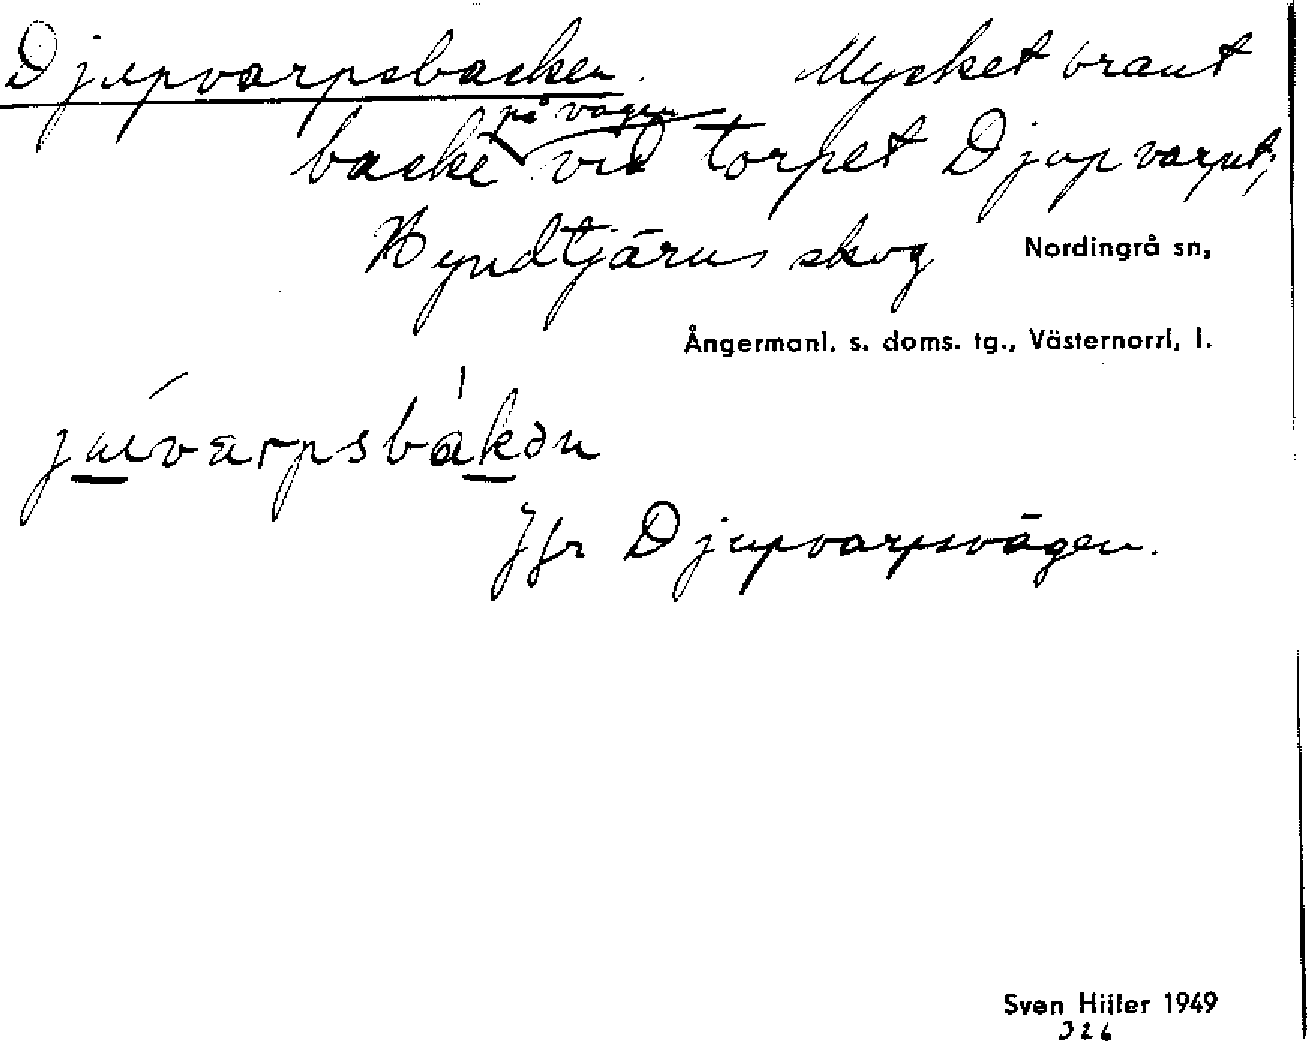 Djupvarpsbacken. Mycket brant
på vägen
backe vid torpet Djupvarpet;
Hyndtjärns skog Nordingrå sn,
Ångermanl. s. doms. tg., Västernorrl. l.
Jfr Djupvarpsvägen.
Sven Hiller 1949
326